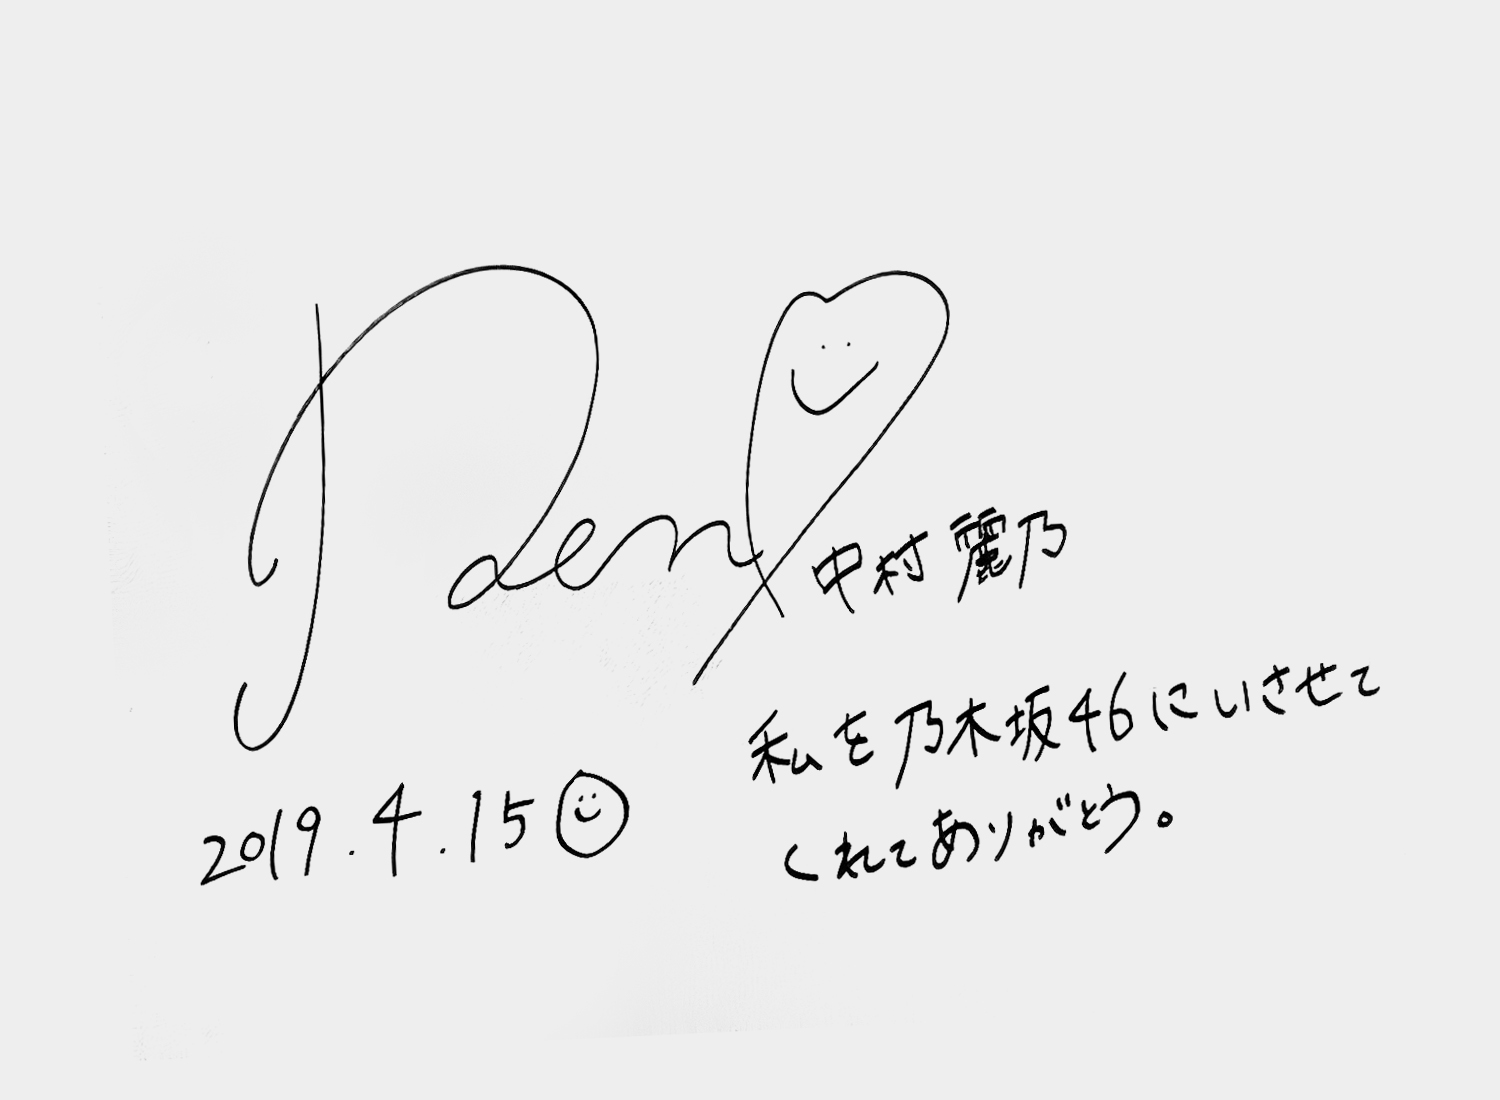 Reno
中村麗乃
私を乃木坂46にいさせて
くれてありがとう。
2019.4.15